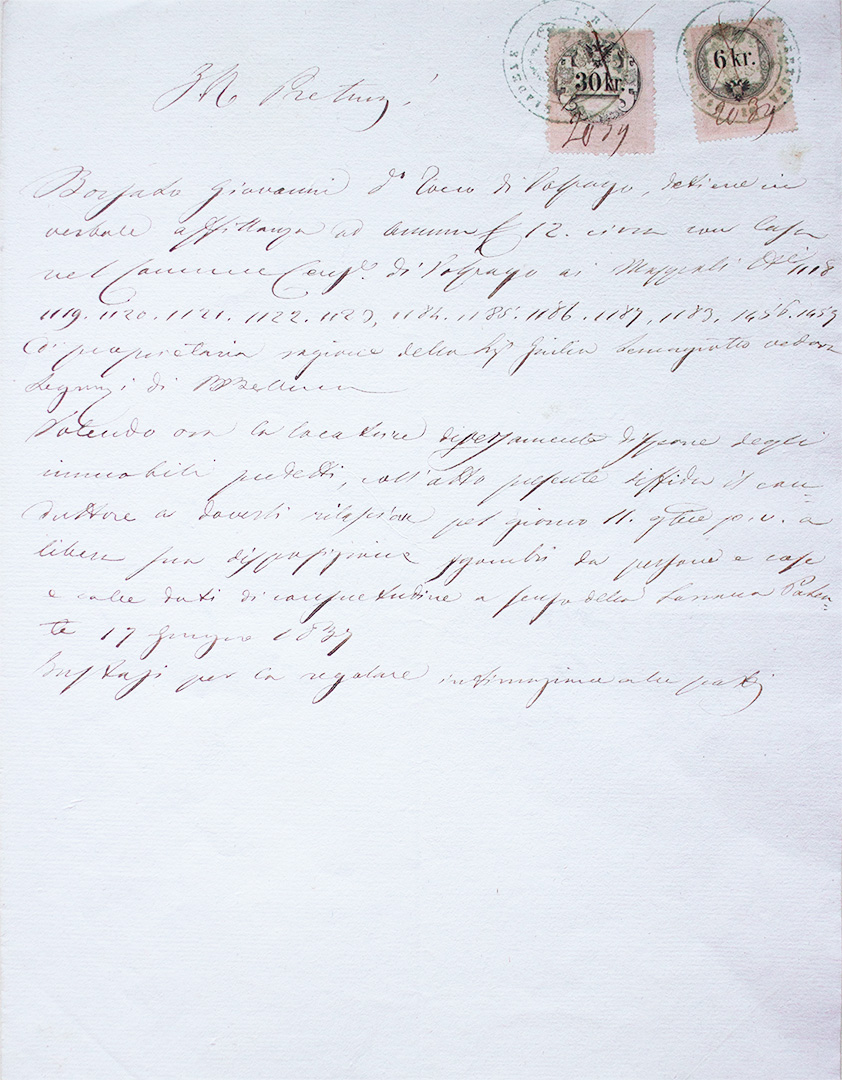 30 kr.
6 kr.
2039
2039
I R Pretura!
Giovanni di Volpago, detiene in
verbale affittanza ad annue £ 12. circa con Casa
nel Comune Cens.º di Volpago ai Mappali Nri 1118
1119. 1120. 1121. 1122. 1123, 1184. 1185. 1186. 1187, 1183, 1456. 1457
di proprietaria ragione della Sig.ª Giulia vedova
di Belluno
Volendo ora la locatrice diversamente disporre degli
immobili predetti, coll'atto presente diffida il con-
duttore a doverli rilasciare pel giorno 11. 9bre p.v. a
libera sua disposizione sgombri da persone e cose
e colle doti di consuetudine a senso della Sovrana Paten-
te 17 Giugno 1837
per la regolare intimazione alle parti